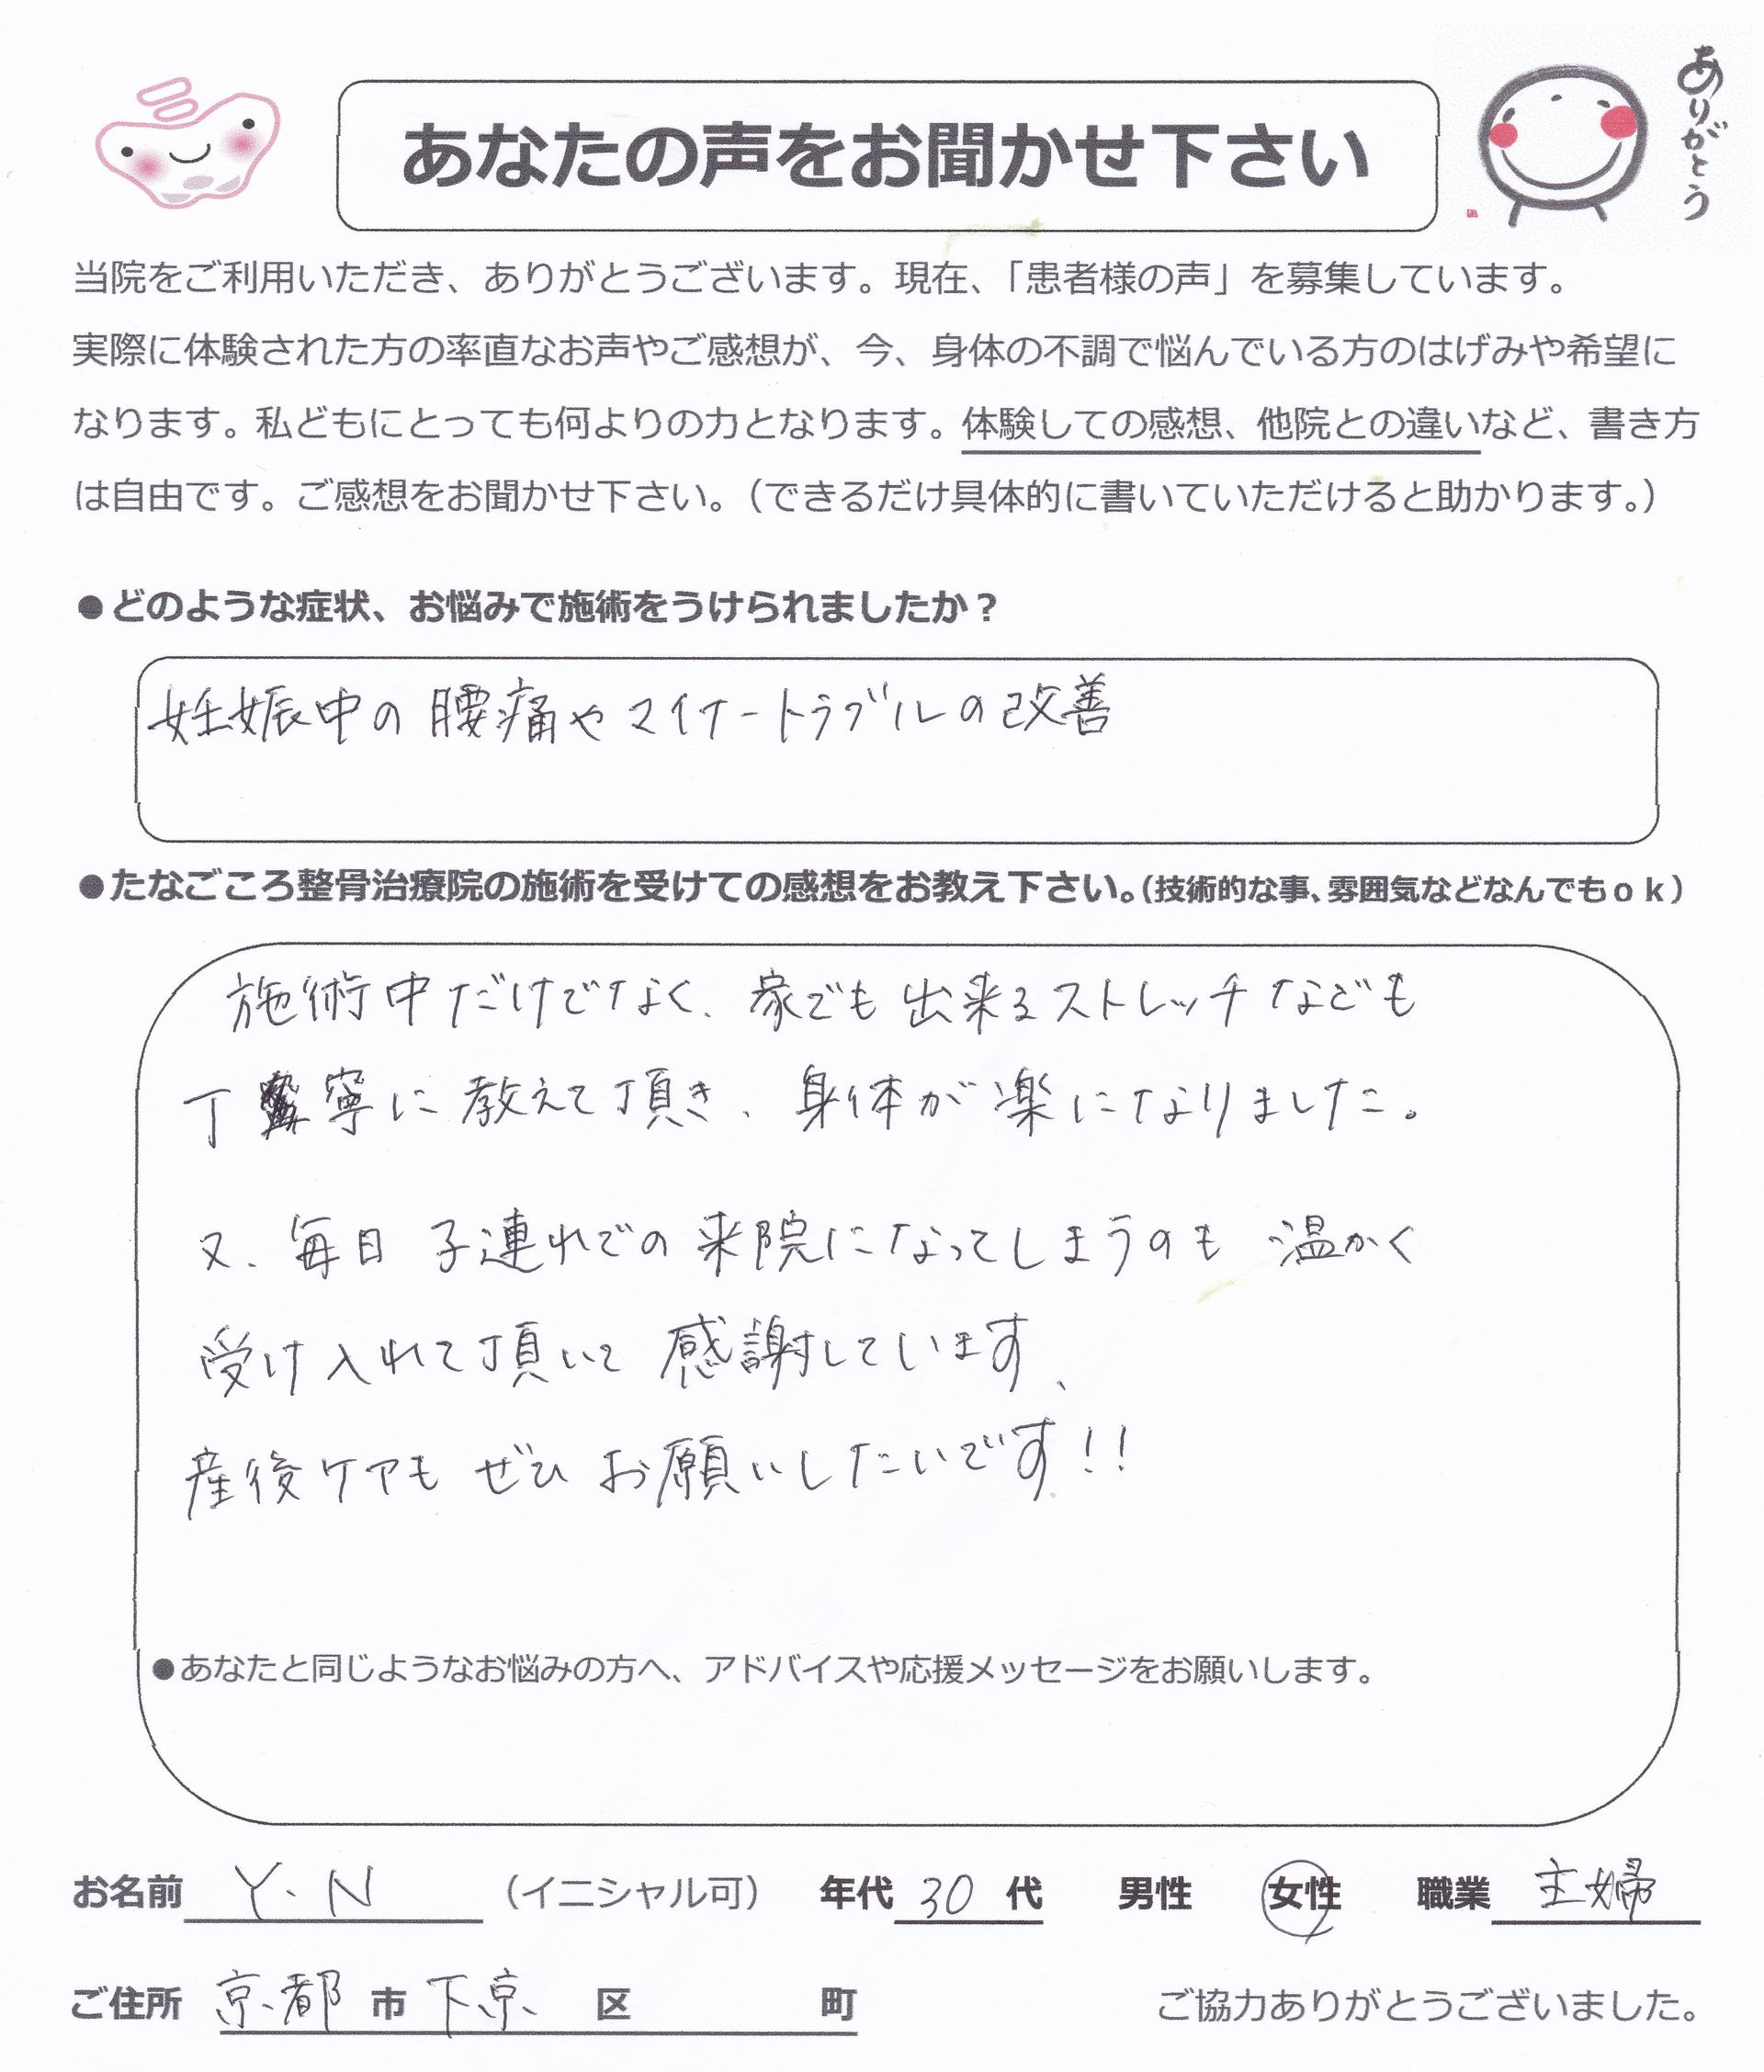 あなたの声をお聞かせ下さい
ありがとう
当院をご利用いただき、ありがとうございます。現在、「患者様の声」を募集しています。
実際に体験された方の率直なお声やご感想が、今、身体の不調で悩んでいる方のはげみや希望に
なります。私どもにとっても何よりの力となります。体験しての感想、他院との違いなど、書き方
は自由です。ご感想をお聞かせ下さい。（できるだけ具体的に書いていただけると助かります。）
●どのような症状、お悩みで施術をうけられましたか？
妊娠中の腰痛やマイナートラブルの改善
●たなごころ整骨治療院の施術を受けての感想をお教え下さい。（技術的な事、雰囲気などなんでもｏｋ）
施術中だけでなく、家でも出来るストレッチなども
丁寧に教えて頂き、身体が楽になりました。
又、毎日子連れでの来院になってしまうのも温かく
受け入れて頂いて感謝しています、
産後ケアもぜひお願いしたいです!!
●あなたと同じようなお悩みの方へ、アドバイスや応援メッセージをお願いします。
お名前 Y.N （イニシャル可） 年代 30 代 男性 女性 職業 主婦
ご住所 京都 市 下京 区 町 ご協力ありがとうございました。